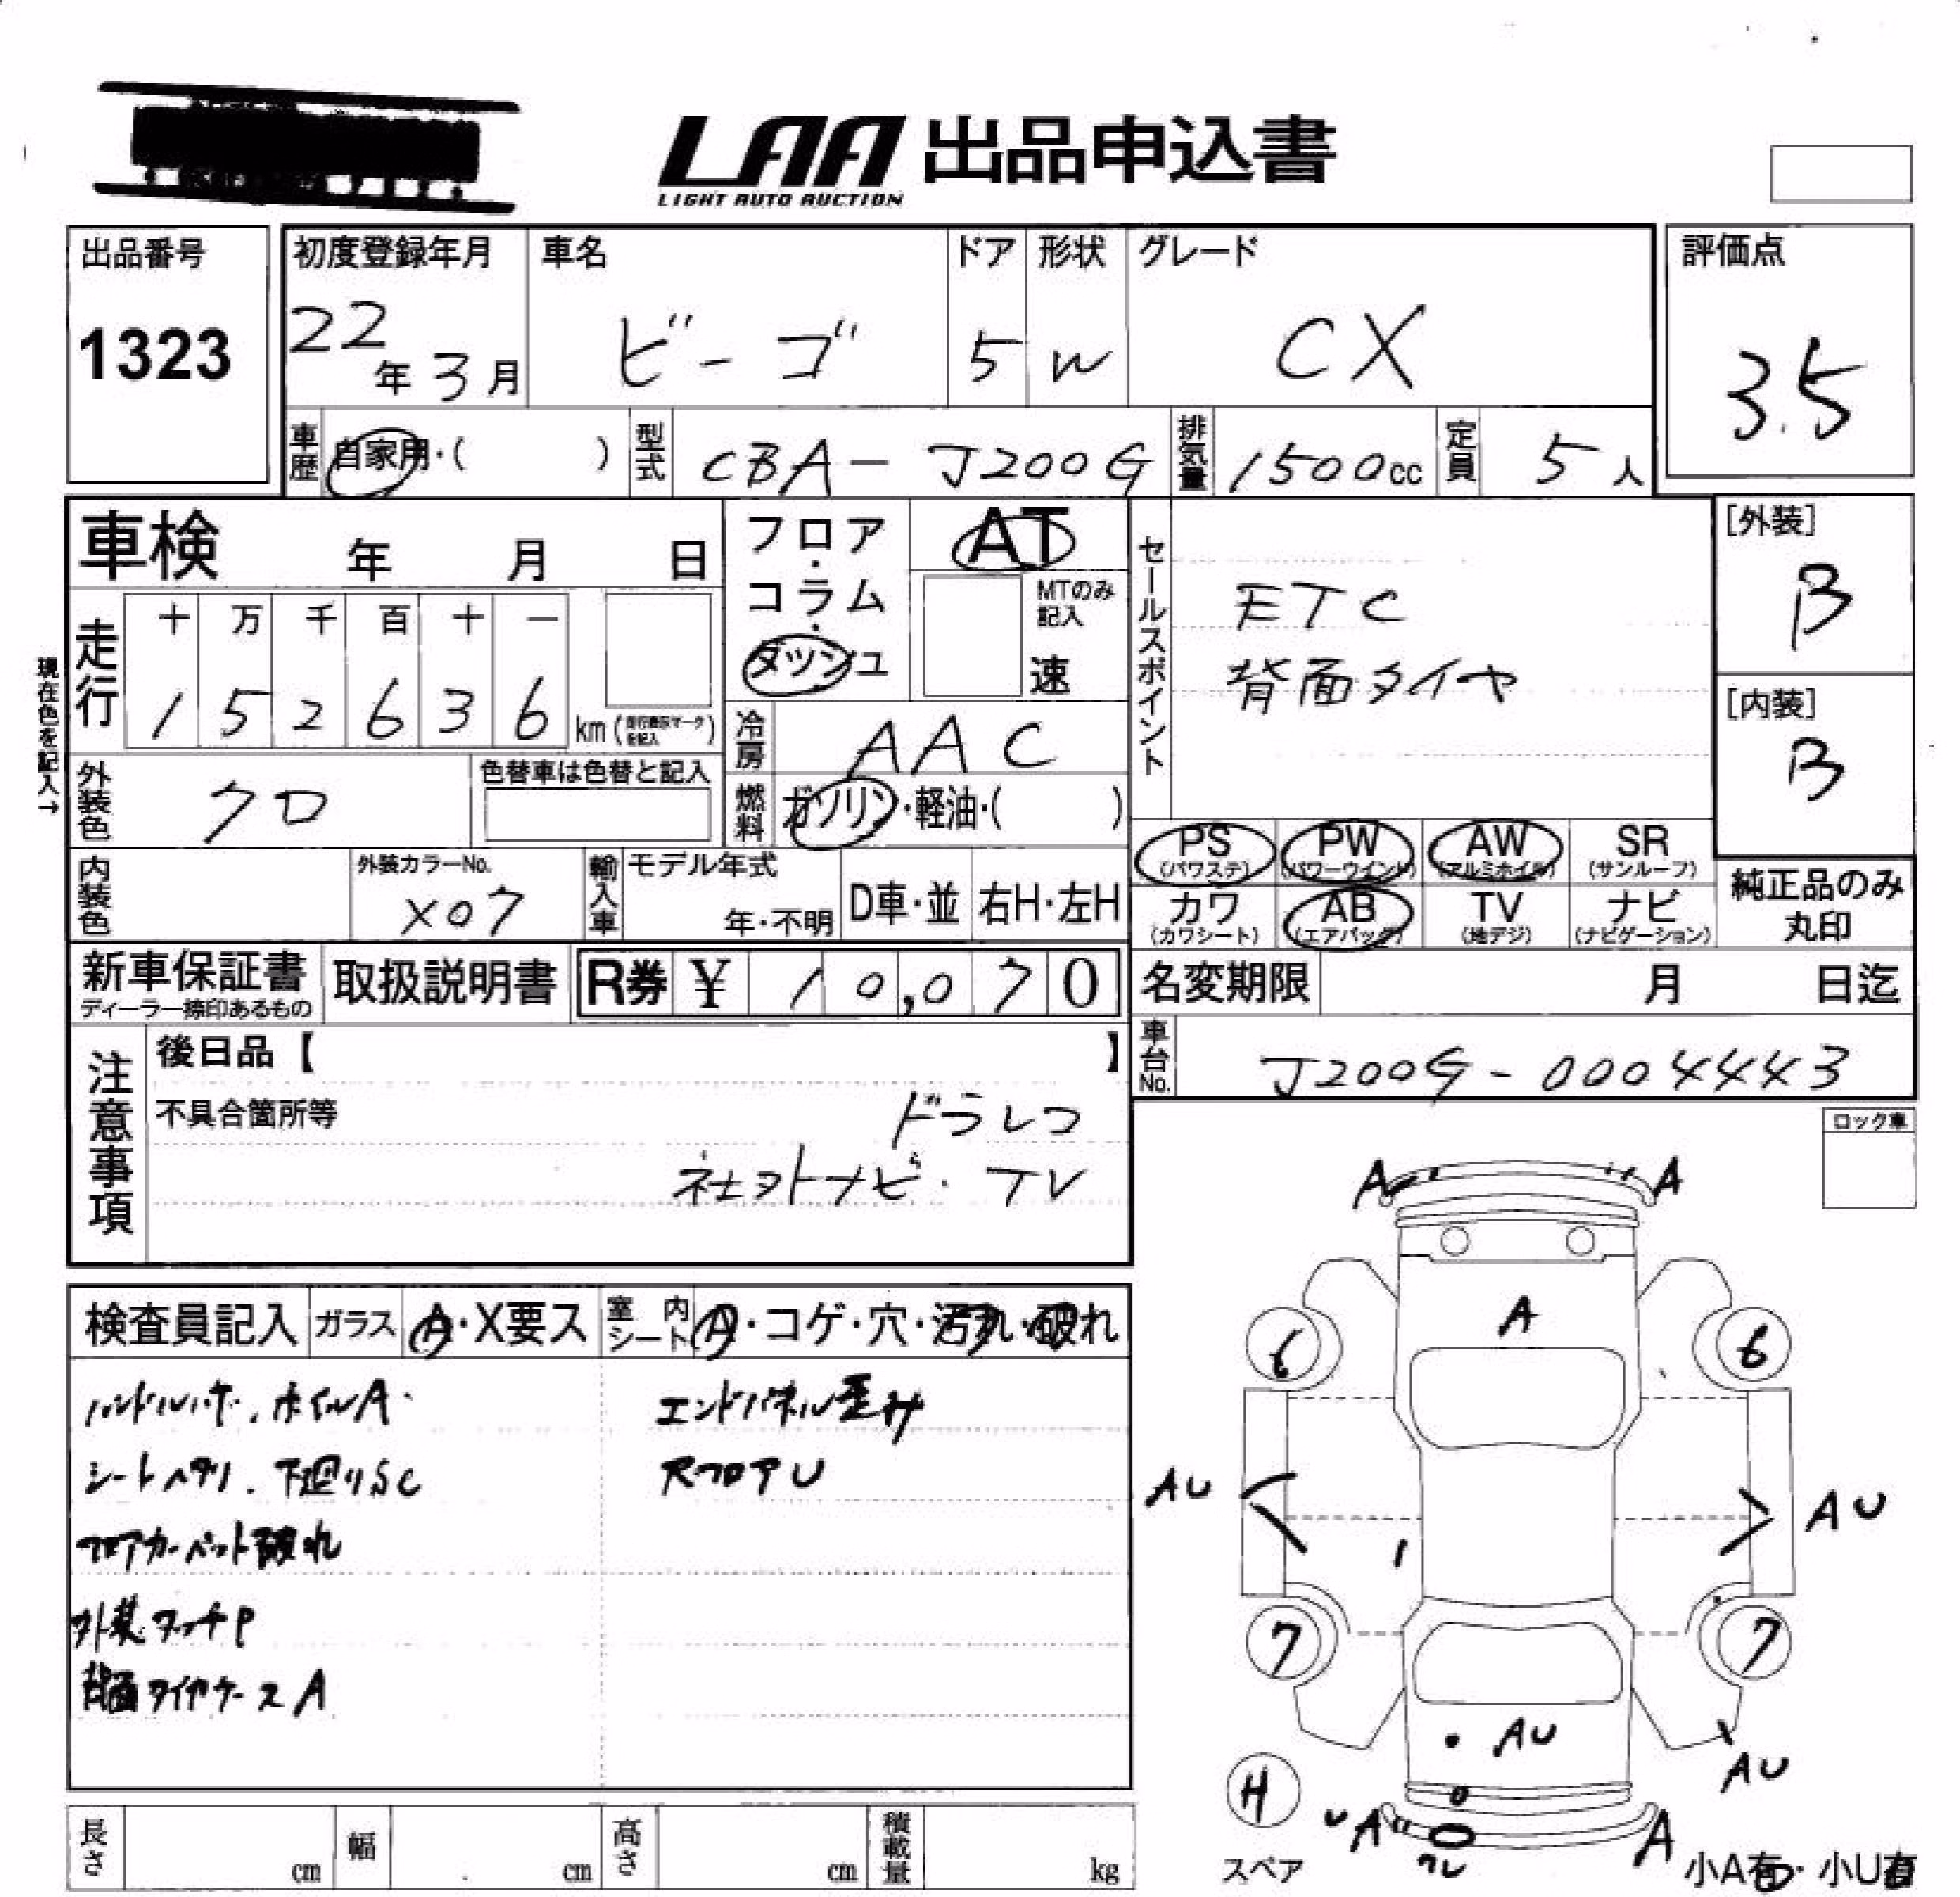 LAA 出品申込書
LIGHT AUTO AUCTION
出品番号
1323
初度登録年月
22年3月
車名
ビーゴ
ドア
5
形状
W
グレード
CX
評価点
3.5
車歴
自家用・( )
型式
CBA-J200G
排気量
1500cc
定員
5人
車検 年 月 日
フロア・コラム・ダッシュ
AT
MTのみ記入
速
セールスポイント
ETC
背面タイヤ
[外装]
B
[内装]
B
現在色を記入→
走行
十 万 千 百 十 一
1 5 2 6 3 6 km
冷房
AAC
外装色
クロ
色替車は色替と記入
燃料
ガソリン・軽油・( )
PS (パワステ)
PW (パワーウインド)
AW (アルミホイル)
SR (サンルーフ)
カワ (カワシート)
AB (エアバッグ)
TV (地デジ)
ナビ (ナビゲーション)
純正品のみ丸印
内装色
外装カラーNo.
X07
輸入車
モデル年式
年・不明
D車・並
右H・左H
新車保証書
ディーラー捺印あるもの
取扱説明書
R券 ¥ 10,070
名変期限 月 日迄
車台No.
J200G-0004443
注意事項
後日品【 】
不具合箇所等
ドラレコ
社外ナビ・TV
ロック車
検査員記入
ガラス
A・X要ス
室内シート
A・コゲ・穴・汚れ・破れ
ホイルA
シートヘタリ. 下廻りSC
フロアカーペット破れ
外装タッチP
背面タイヤケースA
エンドパネル歪み
RフロアU
A A
A
6 6
AU AU
7 7
AU
AU
H
U A A
ワレ
スペア
小A有・小U有
長さ cm
幅 cm
高さ cm
積載量 kg